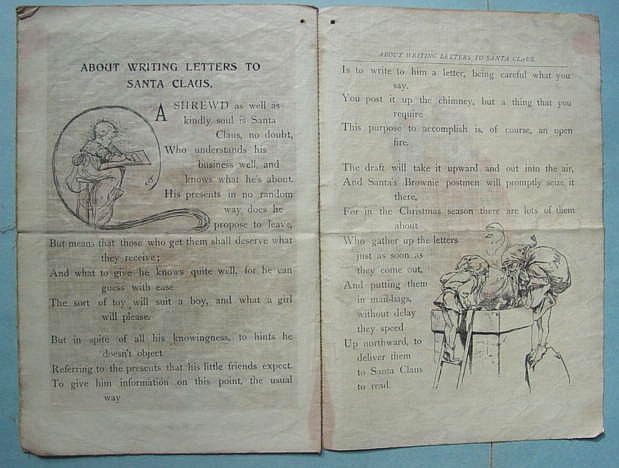 ABOUT WRITING LETTERS TO
SANTA CLAUS.
A SHREWD as well as
kindly soul is Santa
Claus, no doubt,
Who understands his
business well, and
knows what he's about.
His presents in no random
way does he
propose to leave,
But means that those who get them shall deserve what
they receive;
And what to give he knows quite well, for he can
guess with ease
The sort of toy will suit a boy, and what a girl
will please.
But in spite of all his knowingness, to hints he
doesn't object
Referring to the presents that his little friends expect.
To give him information on this point, the usual
way
ABOUT WRITING LETTERS TO SANTA CLAUS.
Is to write to him a letter, being careful what you
say.
You post it up the chimney, but a thing that you
require
This purpose to accomplish is, of course, an open
fire.
The draft will take it upward and out into the air,
And Santa's Brownie postmen will promptly seize it
there,
For in the Christmas season there are lots of them
about
Who gather up the letters
just as soon as
they come out,
And putting them
in mail-bags,
without delay
they speed
Up northward, to
deliver them
to Santa Claus
to read.